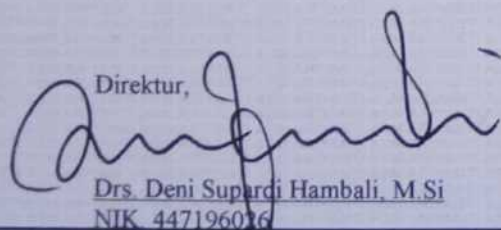 Direktur,
Drs. Deni Supardi Hambali, M.Si
NIK. 447196026